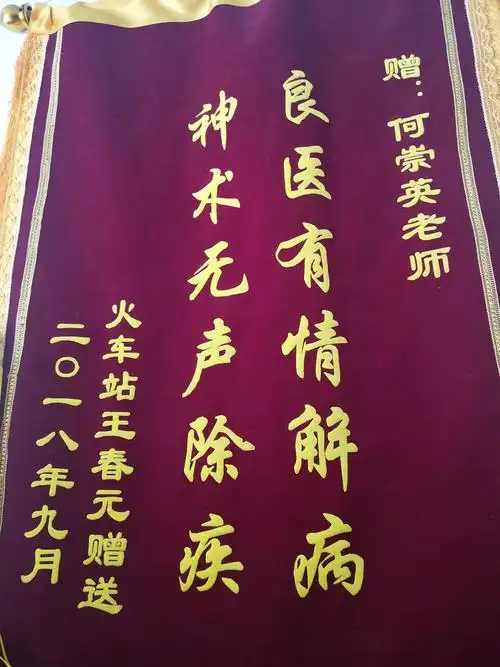 赠：何崇英老师
良医有情解病
神术无声除疾
火车站王春元赠送
二〇一八年九月